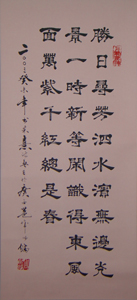 勝日尋芳泗水濱無邊光
景一時新等閑識得東風
面萬紫千紅總是春
二〇〇三癸未年